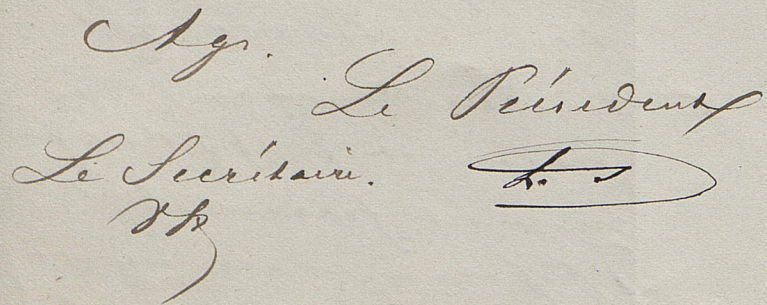 Agr.
Le Président
Le Secrétaire.